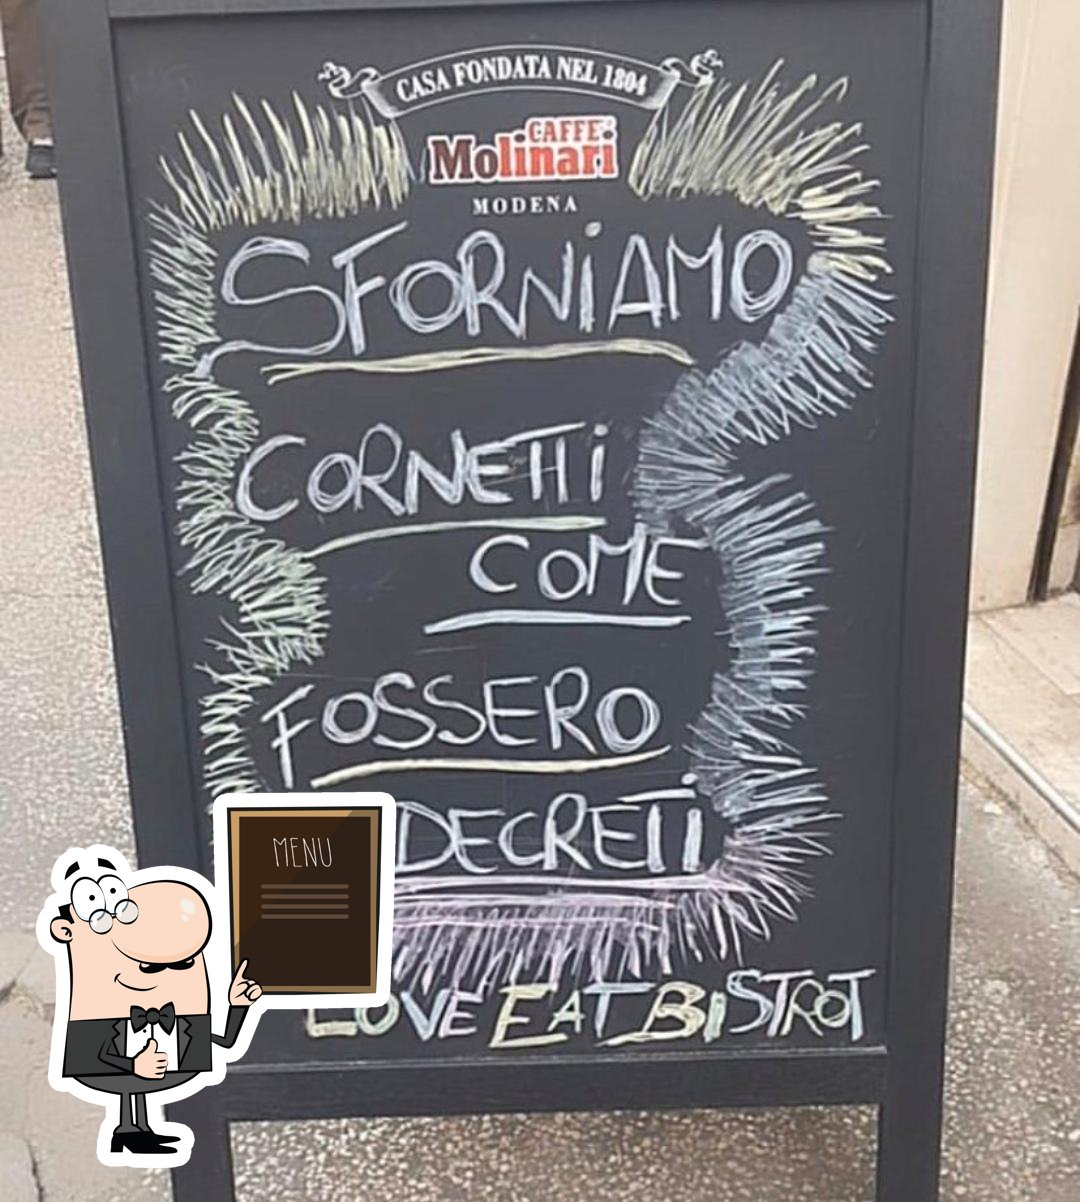 CASA FONDATA NEL 1804
CAFFE'
Molinari
MODENA
SFORNiAMO
CORNETTi
COME
FOSSERO
DECRETi
MENU
LOVE EAT BiSTROT